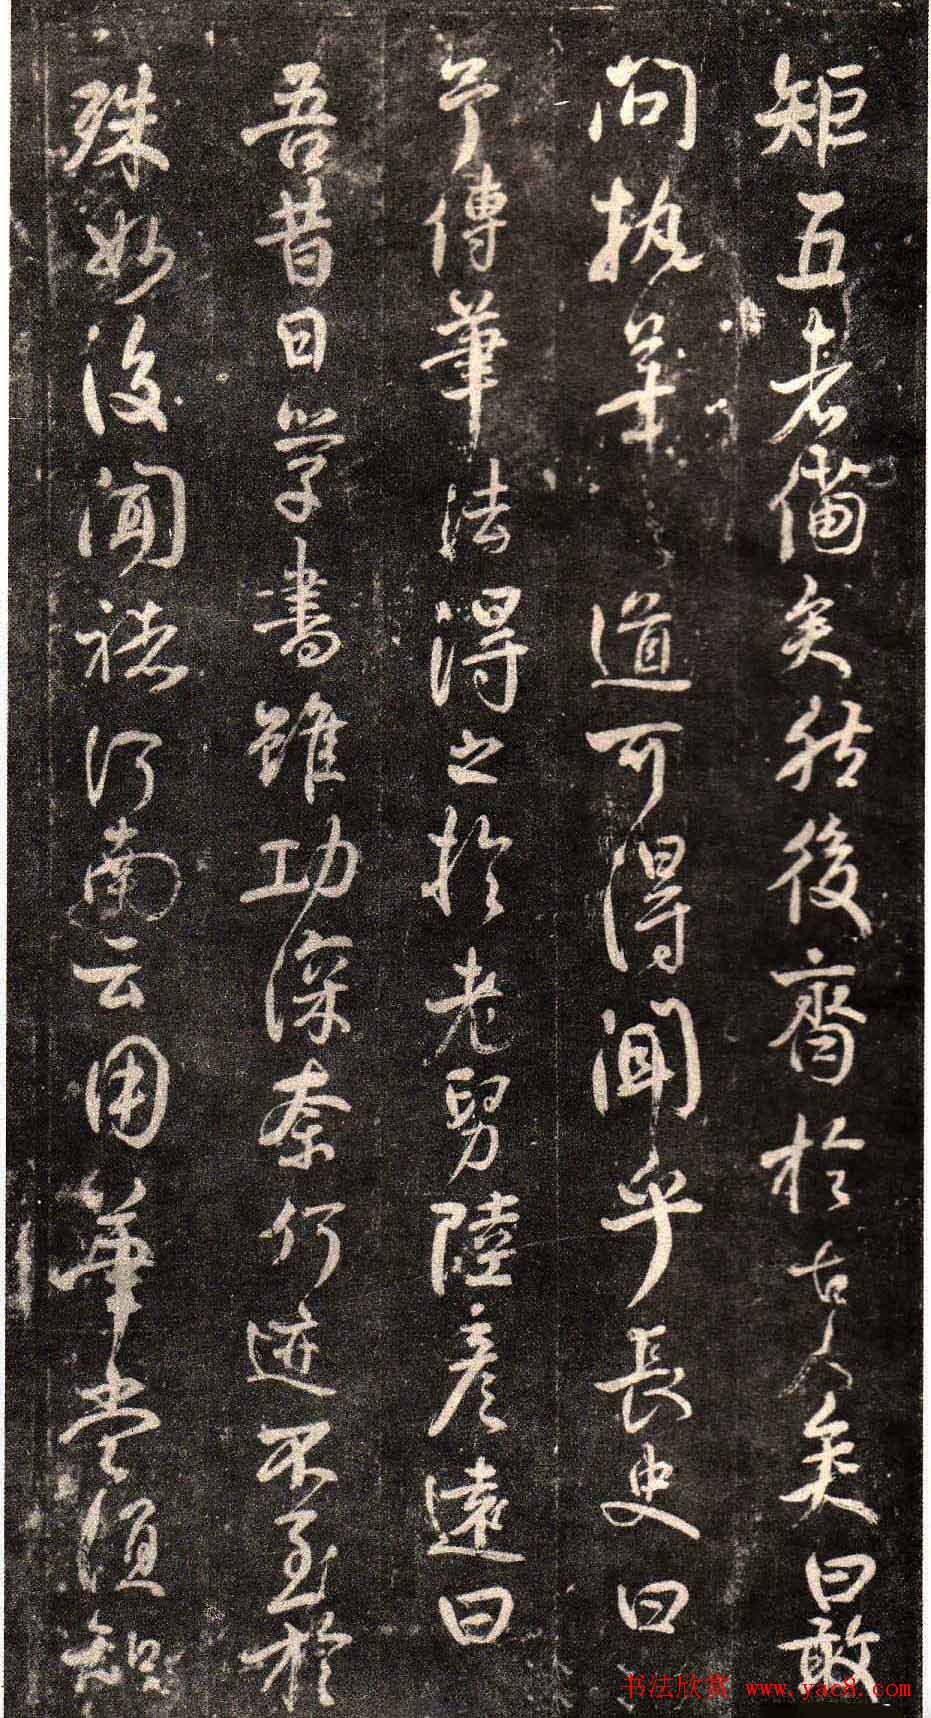 矩五者備矣然後齊於古人矣曰敢
問執筆道可得聞乎長史曰
予傳筆法得之於老舅陸彥遠曰
吾昔日學書雖功深奈何迹不至於
殊妙後聞褚河南云用筆當須知
书法欣赏 www.yac8.com